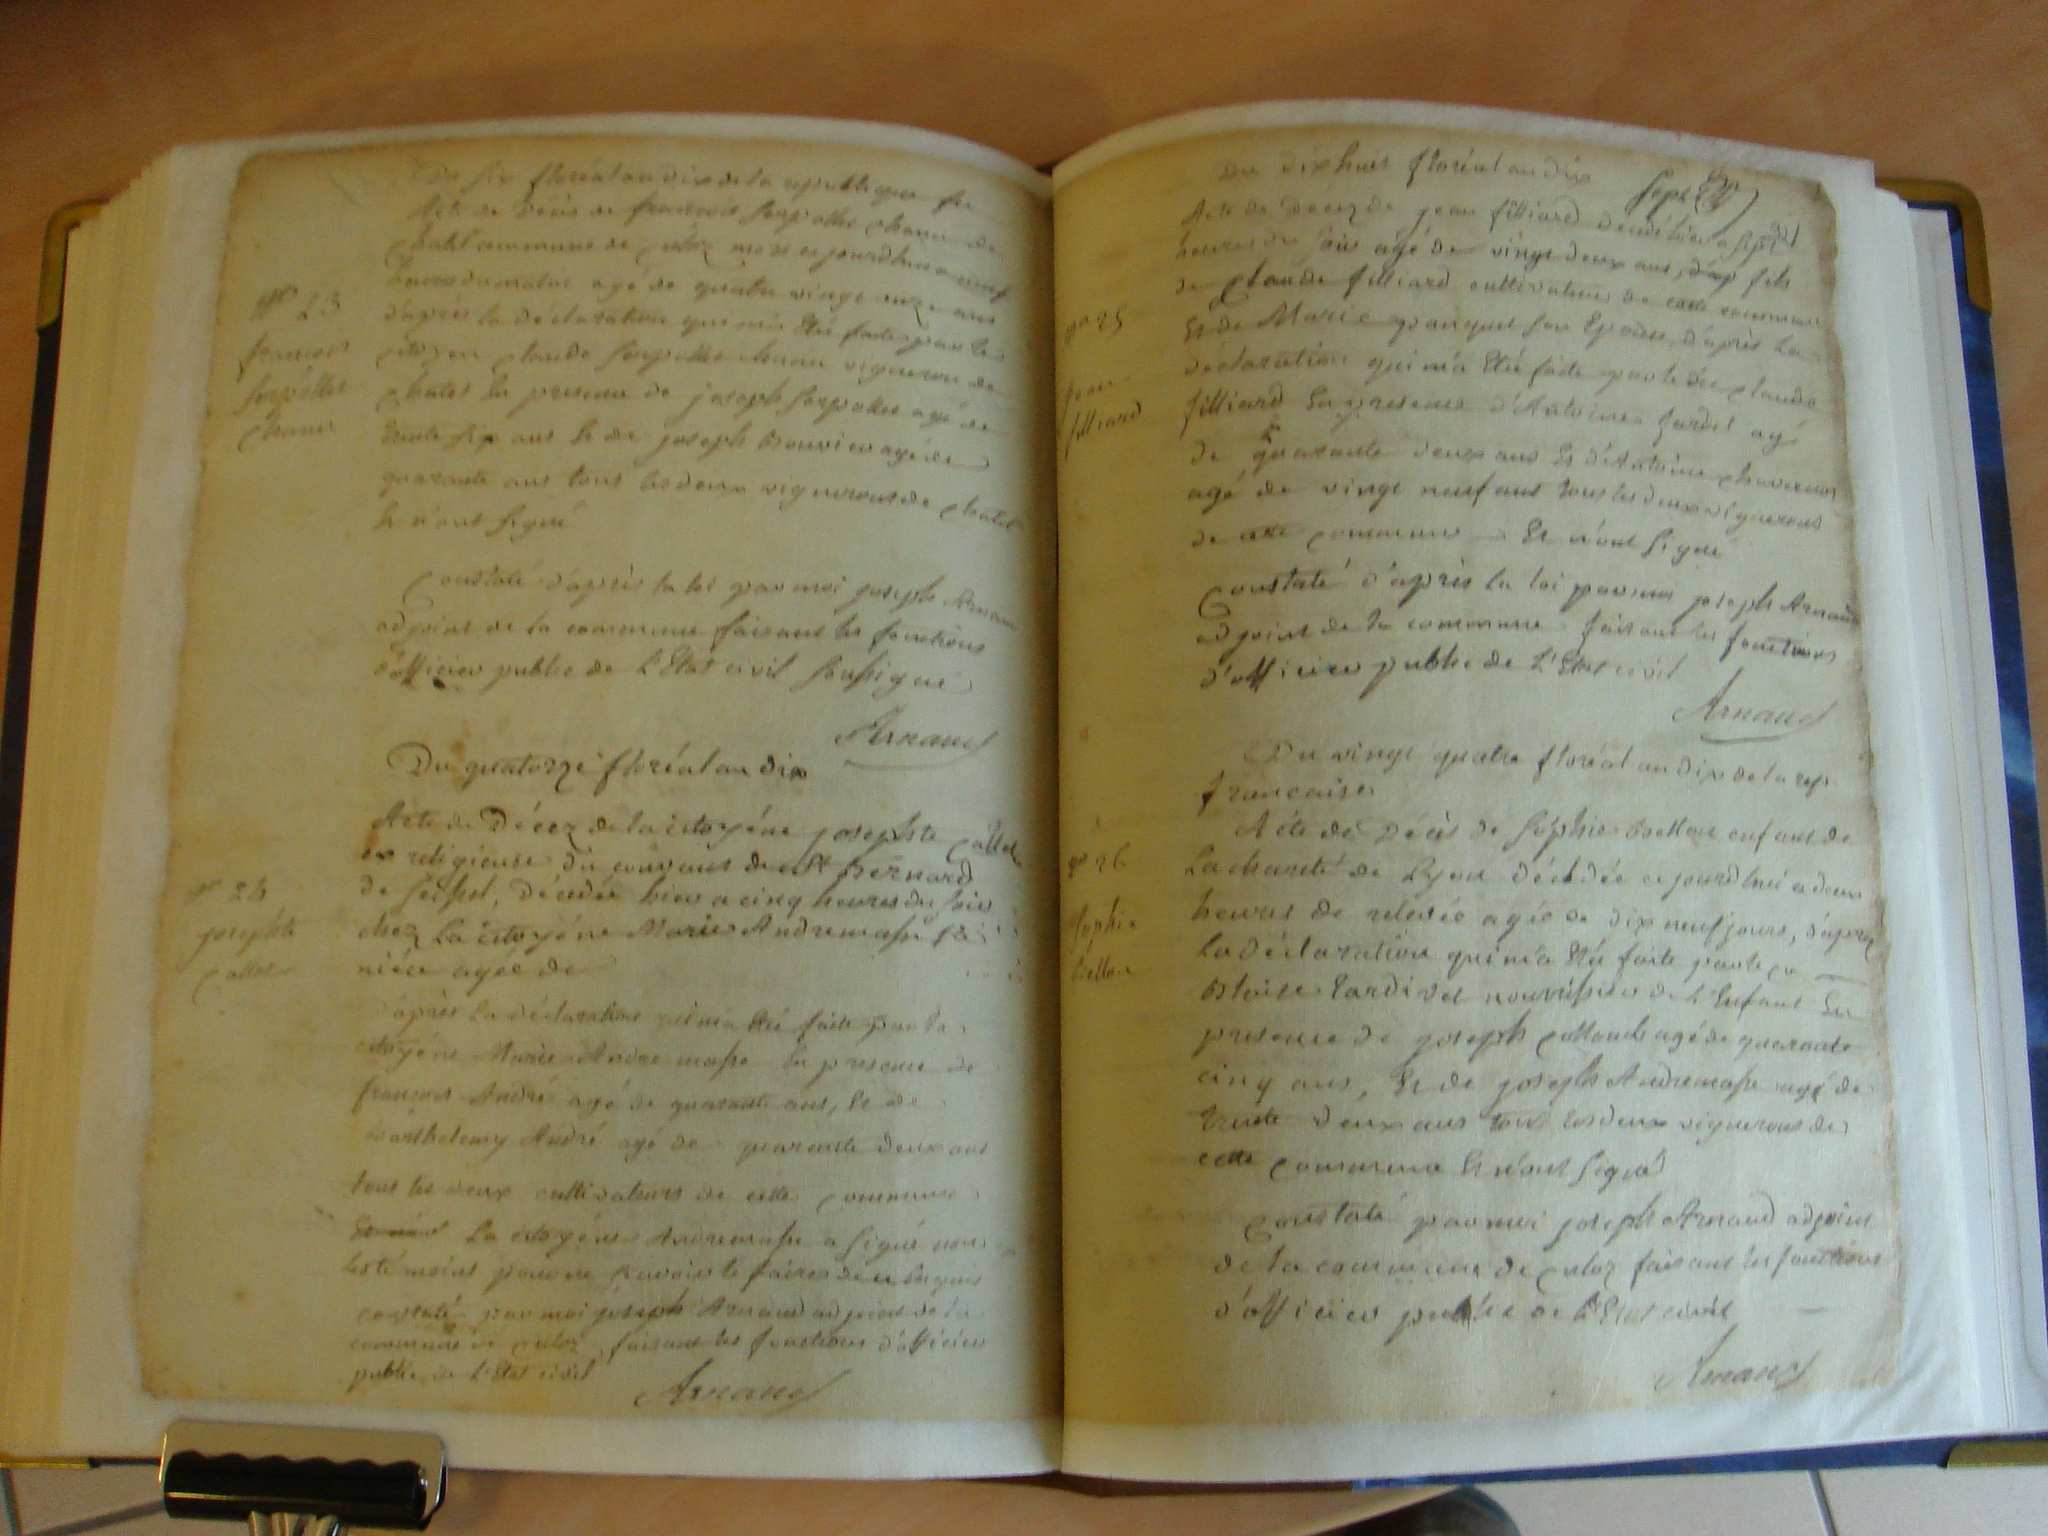 Du six floréal an dix de la republique fr
Acte de Décès de francois serpollet chanu de
chatel commune de culoz mort ce jourdhui a neuf
heures du matin agé de quatre vingt onze ans
d'après la déclaration qui m'a Eté faite par le
citoyen claude serpollet chanu vigneron de
chatel En presence de joseph serpollet agé de
trente six ans Et de joseph Bouvier agé de
quarante ans tous les deux vignerons de chatel
Et n'ont signé
n° 23
francois
serpollet
chanu
Constaté d'après la loi par moi joseph Arnaud
adjoint de la commune faisant les fonctions
d'officier public de L'Etat civil soussigné
Arnaud
Du quatorze floréal an dix
Acte de Décez de la citoyéne josephte callet
ex religieuse du couvent de st Bernard
de seissel, Décédée hier a cinq heures du soir
chez La citoyéne Marie Andremasse sa
niéce agée de
n° 24
josephte
callet
d'après La déclaration qui m'a Eté faite par la
citoyéne Marie Andre masse En presence de
francois André agé de quarante ans, Et de
Barthelemy André agé de quarante deux ans
tous les deux cultivateurs de cette commune
La citoyéne Andremasse a signé non
les témoins pour ne savoir le faire de ce Enquis
constaté par moi joseph Arnaud adjoint de la
commune de culoz faisant les fonctions d'officier
public de L'Etat civil
Arnaud
Du dix huit floréal an dix
sept
Acte de Decez de jean filliard décédé hier a sept
heures du soir agé de vingt deux ans, fils
de claude filliard cultivateur de cette commune
Et de Marie janquet son Epouse, d'après La
déclaration qui m'a Eté faite par le dit claude
filliard En presence d'Antoine jardet agé
de quarante deux ans Et d'Antoine chavanon
agé de vingt neuf ans tous les deux vignerons
de cette commune Et n'ont signé
n° 25
jean
filliard
Constaté d'après la loi par moi joseph Arnaud
adjoint de la commune faisant les fonctions
d'officier public de L'Etat civil
Arnaud
Du vingt quatre floréal an dix de la rep.
francaise
Acte de Décès de sophie Bellon enfant de
La charité de Lyon décédée ce jourdhui a deux
heures de relevée agée de dix neuf jours, d'après
La Déclaration qui m'a Eté faite par le
Blaise tardivet nourissier de L'Enfant En
presence de joseph collomb agé de quarante
cinq ans, Et de joseph Andremasse agé de
trente deux ans tous les deux vignerons de
cette commune Et n'ont signé
n° 26
sophie
bellon
Constaté par moi joseph Arnaud adjoint
de la commune de culoz faisant les fonctions
d'officier public de L'Etat civil
Arnaud